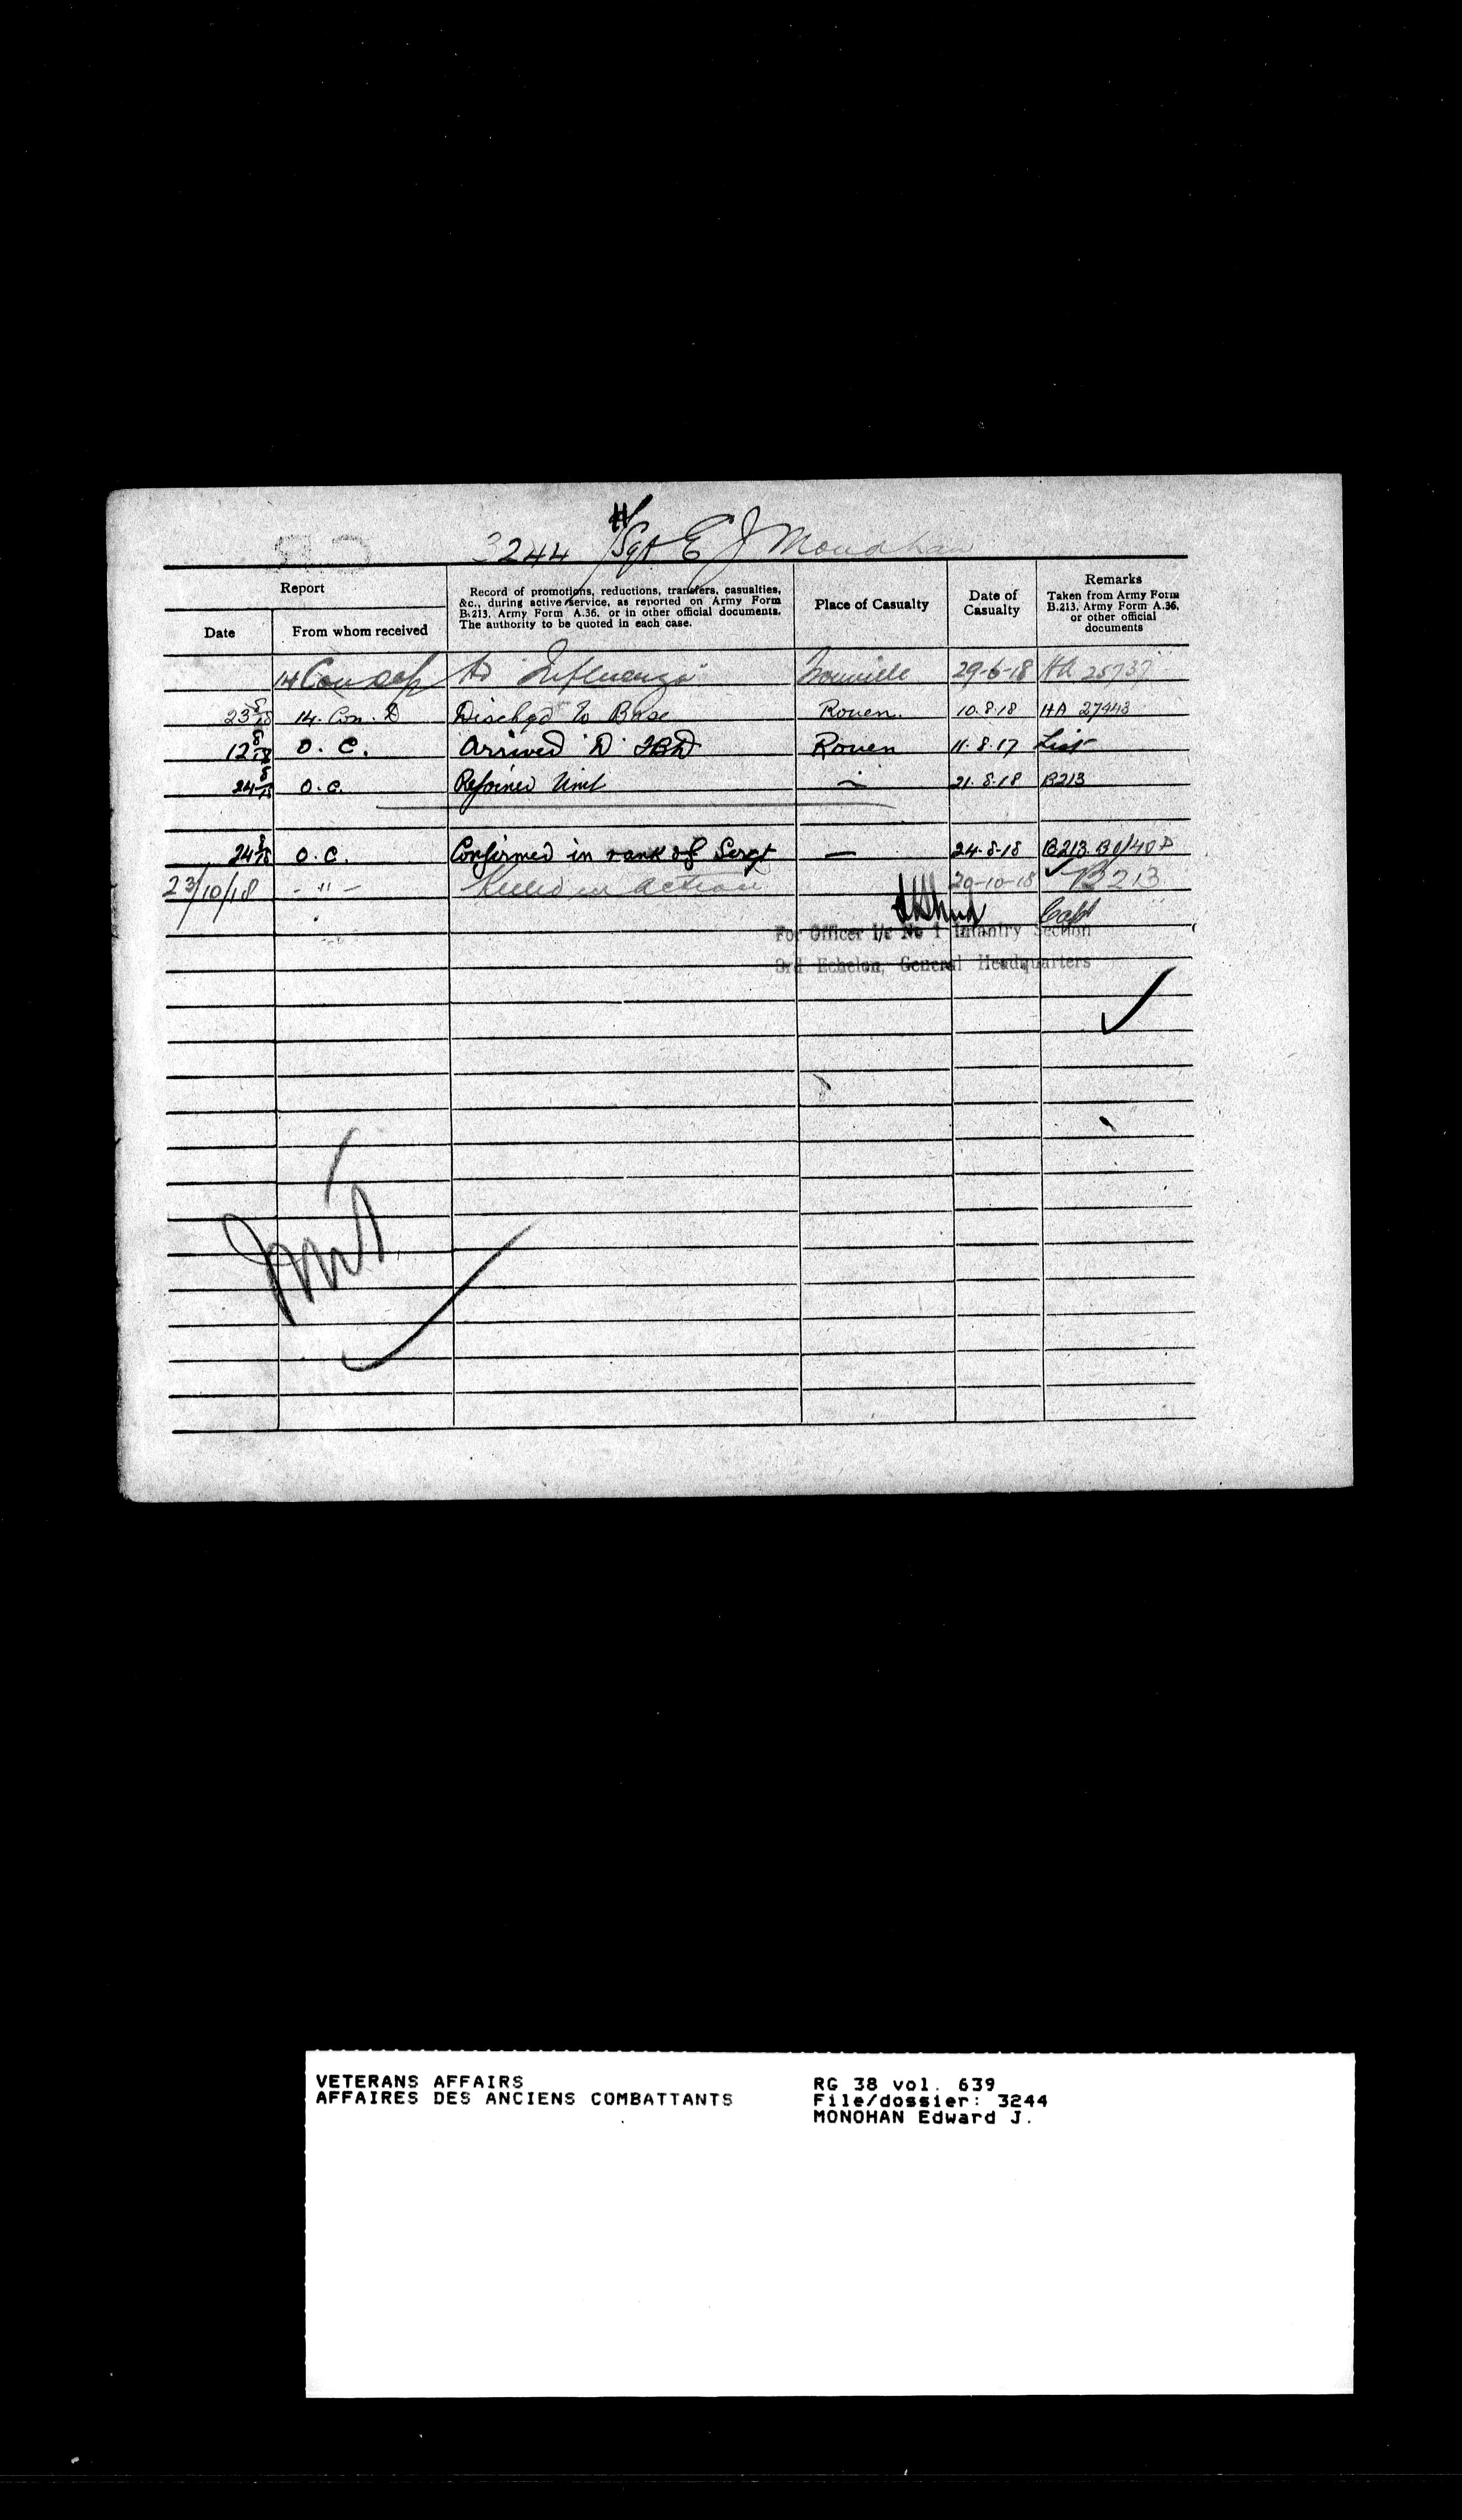 3244 Sgt E J Monohan
Report
Date
From whom received
Record of promotions, reductions, transfers, casualties,
&c., during active service, as reported on Army Form
B.213, Army Form A.36, or in other official documents.
The authority to be quoted in each case.
Place of Casualty
Date of
Casualty
Remarks
Taken from Army Form
B.213, Army Form A.36,
or other official
documents
14 Con dep Ad Influenza 29-6-18 HA 25737
23/8/18 14. Con. D Dischgd to Base Rouen. 10.8.18 HA 27443
12/8/18 O. C. Arrived D IBD Rouen 11.8.17 List
24/8/18 O.C. Rejoined Unit — 21.8.18 B213
24/8/18 O.C. Confirmed in rank of Sergt — 24-8-18 B213
23/10/18 - " - Killed in action 20-10-18 B213
Capt
For Officer i/c No 1 Infantry Section
3rd Echelon, General Headquarters
VETERANS AFFAIRS
AFFAIRES DES ANCIENS COMBATTANTS
RG 38 vol. 639
File/dossier: 3244
MONOHAN Edward J.